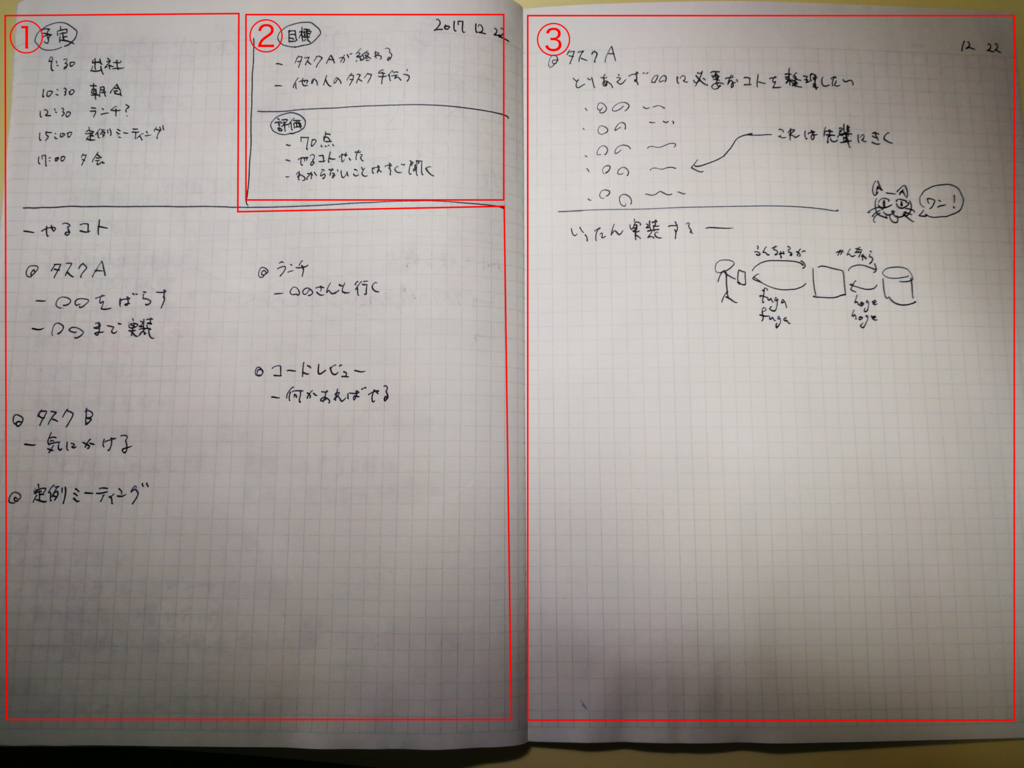 ①
予定
9:30 出社
10:30 朝会
12:30 ランチ?
15:00 定例ミーティング
17:00 夕会
- やるコト
◎ タスクA
- 〇〇をばらす
- 〇〇まで実装
◎ タスクB
- 気にかける
◎ 定例ミーティング
◎ ランチ
- 〇〇さんと行く
◎ コードレビュー
- 何かあればやる
②
目標
2017 12 22
- タスクAが終わる
- 他の人のタスク手伝う
評価
- 70点
- やるコトやった
- わからないことはすぐ聞く
③
12 22
◎ タスクA
とりあえず〇〇に必要なコトを整理したい
・〇〇 〜〜
・〇〇 〜〜
・〇〇 〜〜
・〇〇 〜〜
・〇〇 〜〜
これは先輩にきく
ワン!
いったん実装する ー
うんちゃらか
かんちゃら
fuga
fuga
hoge
hoge